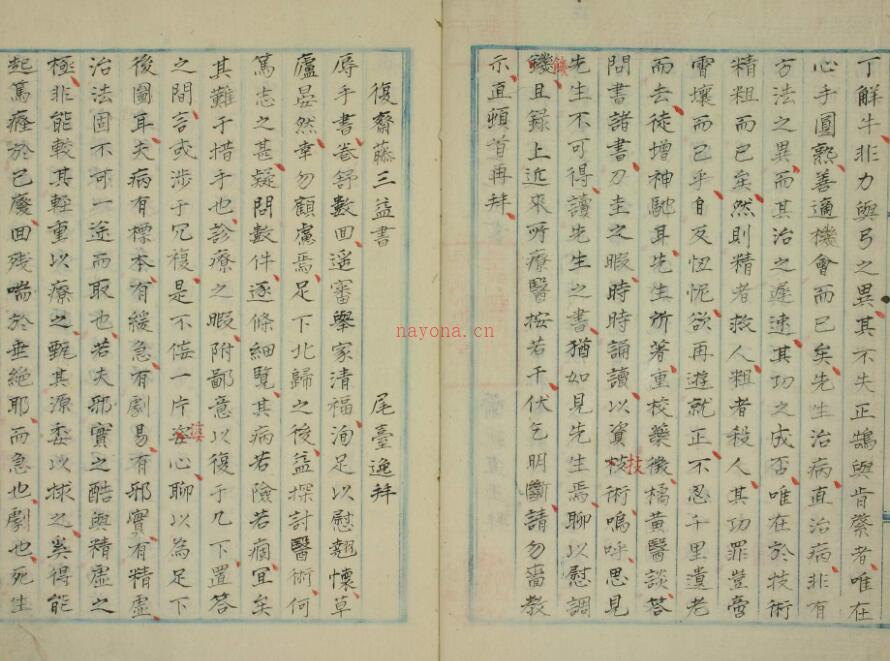 丁解牛非力與弓之異其不失正鵠與肯綮者唯在
心手圓熟善適機會而已矣先生治病直治病非有
方法之異而其治之遲速其功之成否唯在於技術
精粗而已矣然則精者救人粗者殺人其功罪豈啻
霄壤而已乎自反忸怩欲再遊就正不忍千里遺老
而去徒增神馳耳先生所著重校藥徵橘黄醫談答
問書諸書刀圭之暇時時誦讀以資技術嗚呼思見
先生不可得讀先生之書猶如見先生焉聊以慰調
饑且録上近來所療醫按若干伏乞明斷請勿嗇教
示直頓首再拜
復齋藤三益書 尾臺逸拜
辱手書卷舒數回遥審舉家清福洵足以慰翹懷草
廬晏然幸勿顧慮焉足下北歸之後益探討醫術何
篤志之甚疑問數件逐條細覽其病若險若痼宜矣
其難于措手也診療之暇附鄙意以復于几下置答
之間言或涉于冗複是不倦一片婆心聊以為足下
後圖耳夫病有標本有緩急有劇易有邪實有精虚
治法固不可一途而取也若夫邪實之酷與精虚之
極非能較其輕重以療之甄其源委以拯之奚得能
起篤癃於已廢回殘喘於垂絶耶而急也劇也死生
技
婆
nayona.cn